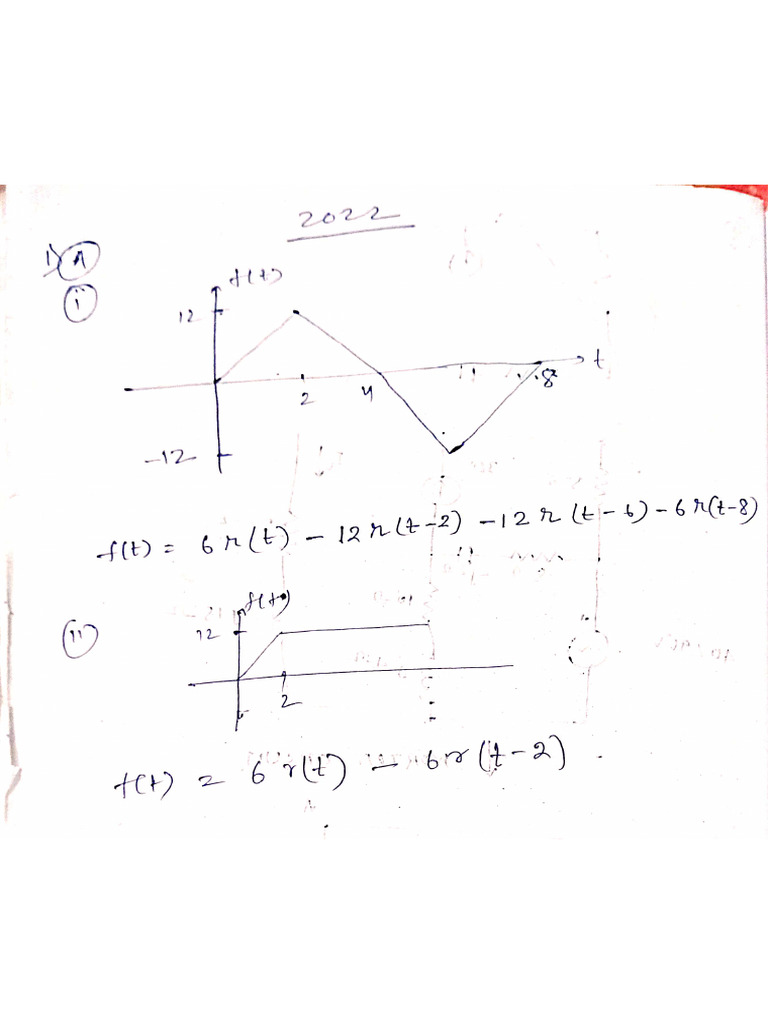 2022
1) A
i
f(t)
12
t
2
4
8
-12
f(t) = 6r(t) - 12r(t-2) - 12r(t-6) - 6r(t-8)
ii
f(t)
12
2
f(t) = 6r(t) - 6r(t-2).